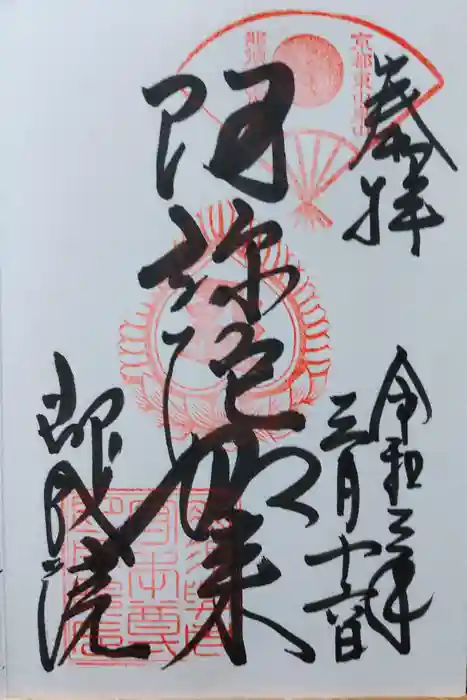 奉拝
令和三年
三月十六日
阿弥陀如来
即成院
京都東山泉山